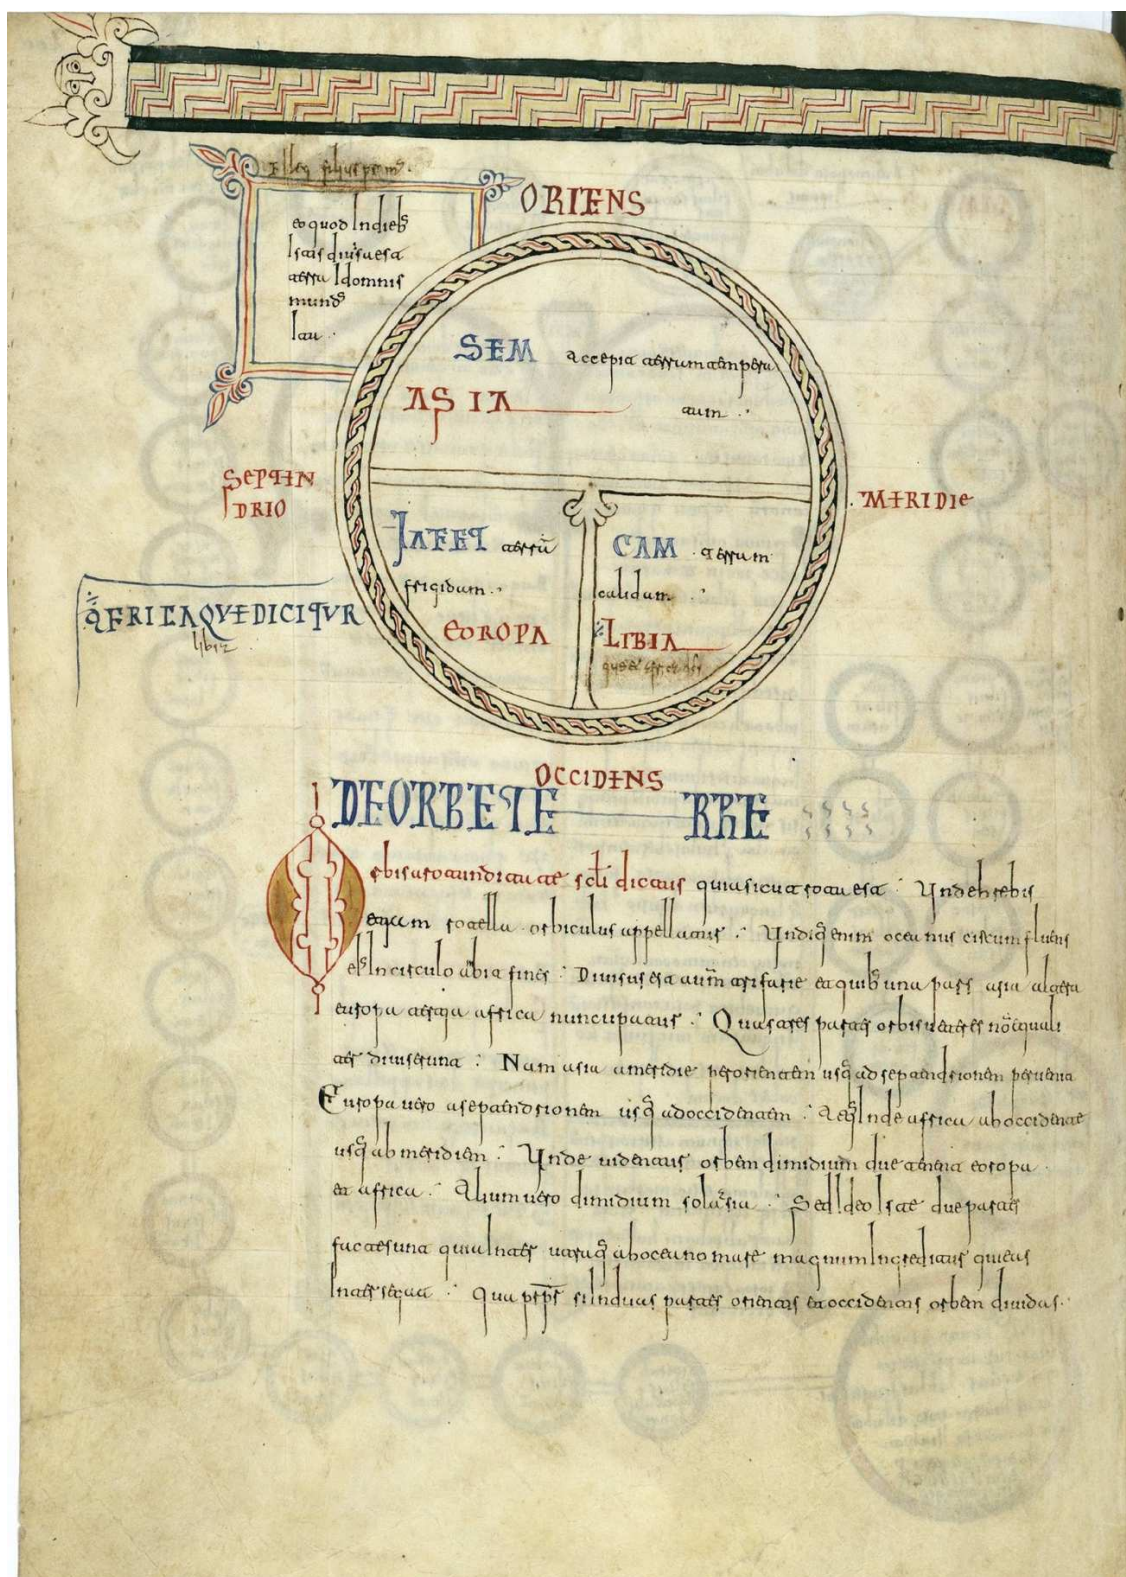 eo quod In dieb;
diuisa est
terra Id omnis
mund;
ORIENS
SEM accepit terram tempera
ASIA tam
SEPTEN
TRIO
MERIDIE
IAFET terrā CAM terram
frigidam calidam
EOROPA LIBIA
AFRICA QVE DICITVR
libia
OCCIDENS
DE ORBE TE RRE
Orbis a rotunditate dictus quia sicut rota est Unde brebis
etiam rotella orbiculus appellatur Undiq; enim oceanus circumfluens
eī In circulo ambit fines Diuisus est autm̄ trifarie e quib; una pars asia altera
europa tertia affrica nuncupatur Quas tres partes orbis ueteres nō equali
ter diuiserunt Nam asia a meridie per orientem usq; ad septentrionem peruenit
Europa uero a septentrione usq; ad occidentem Atq; Inde affrica ab occidente
usq; ab meridiem Unde uidentur orbem dimidium due tenent eoropa
et affrica Alium uero dimidium sola asia Sed Ideo Iste due partes
facte sunt quia Inter utraq; ab oceano mare magnum Ingreditur qui eas
Inter secat Qua propter si In duas partes orientis et occidentis orbem diuidas